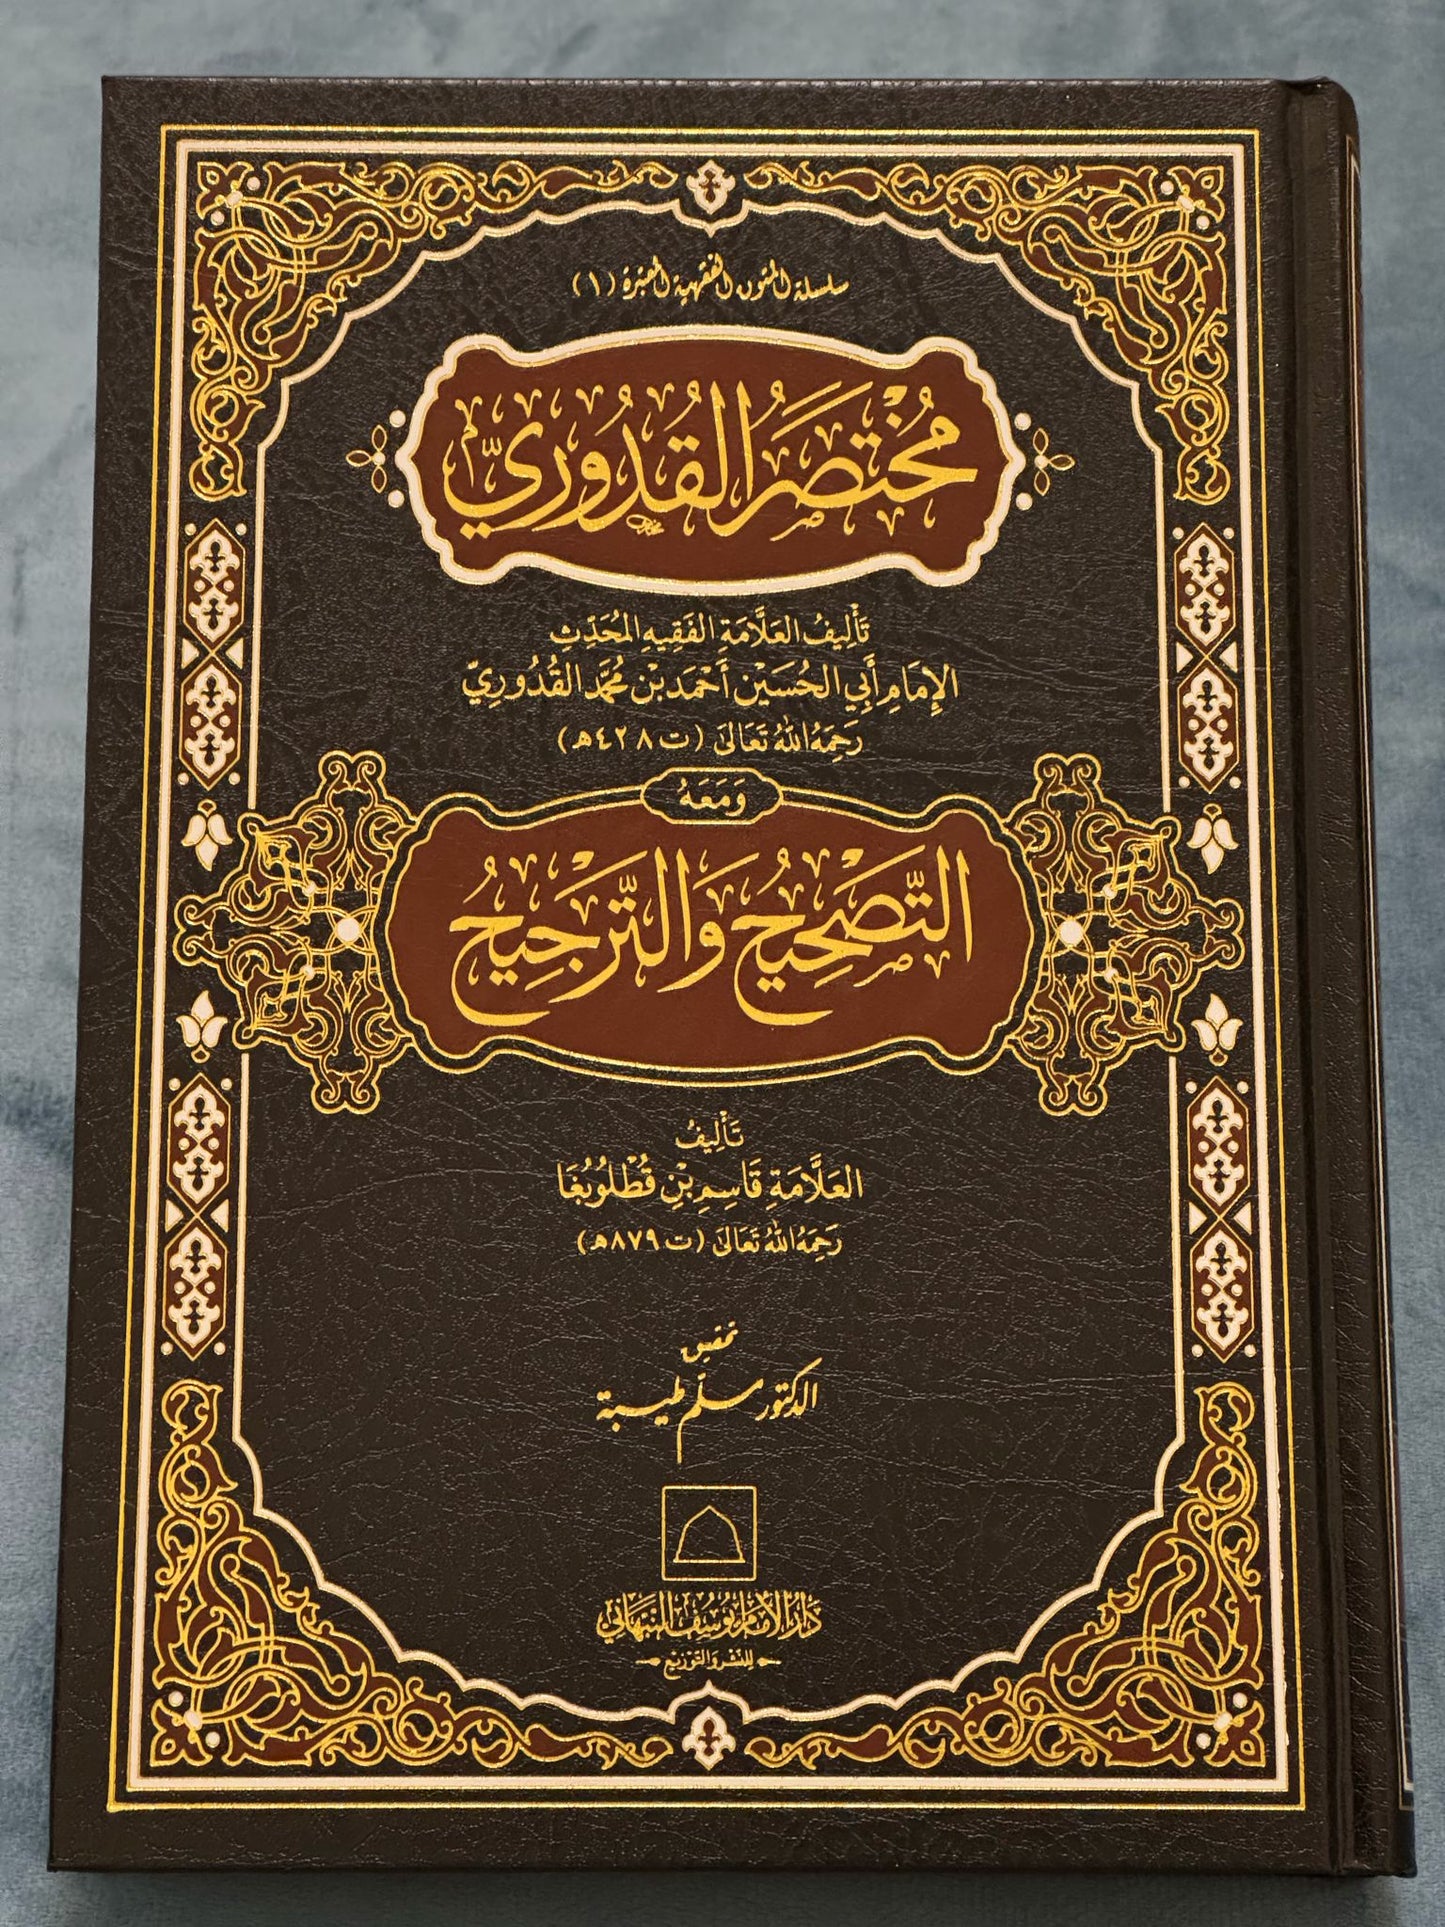 سلسلة المتون الفقهية المعتبرة (١)
مُخْتَصَرُ القُدُورِيّ
تَأْلِيفُ العَلَّامَةِ الفَقِيهِ المُحَدِّثِ
الإِمَامِ أَبِي الحُسَيْنِ أَحْمَد بْنِ مُحَمَّد القُدُورِيّ
رَحِمَهُ اللهُ تَعَالَى (ت ٤٢٨هـ)
وَمَعَهُ
التَّصْحِيحُ وَالتَّرْجِيحُ
تَأْلِيفُ
العَلَّامَةِ قَاسِمِ بْنِ قُطْلُوبُغَا
رَحِمَهُ اللهُ تَعَالَى (ت ٨٧٩هـ)
تحقيق
الدكتور مسلّم طيبة
دَارُ الإِمَامِ يُوسُفَ النَّبْهَانِي
لِلنَّشْرِ وَالتَّوْزِيعِ